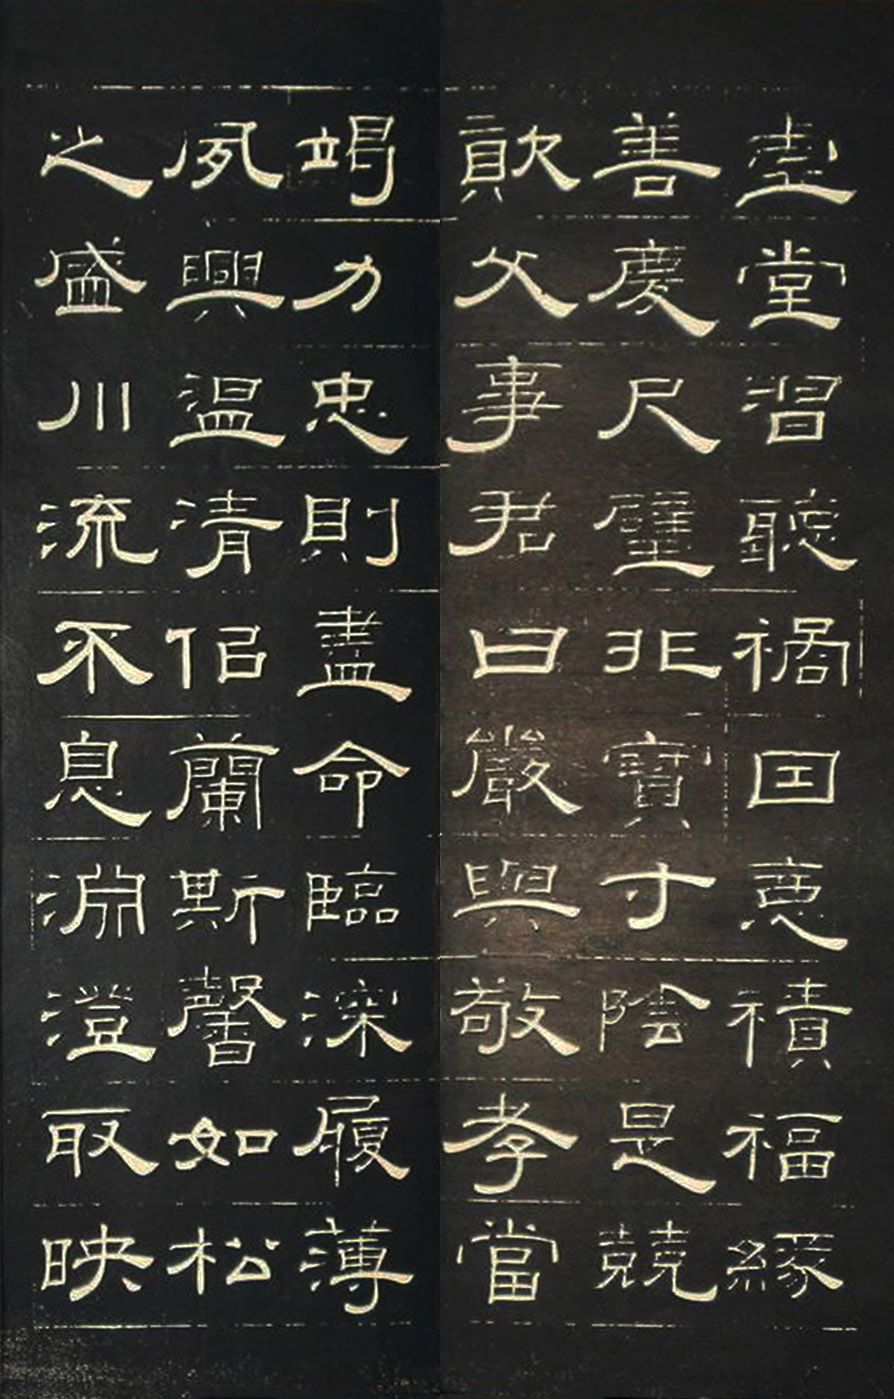 虛堂習聽禍因惡積福緣
善慶尺璧非寶寸陰是競
資父事君曰嚴與敬孝當
竭力忠則盡命臨深履薄
夙興温凊佀蘭斯馨如松
之盛川流不息淵澄取映